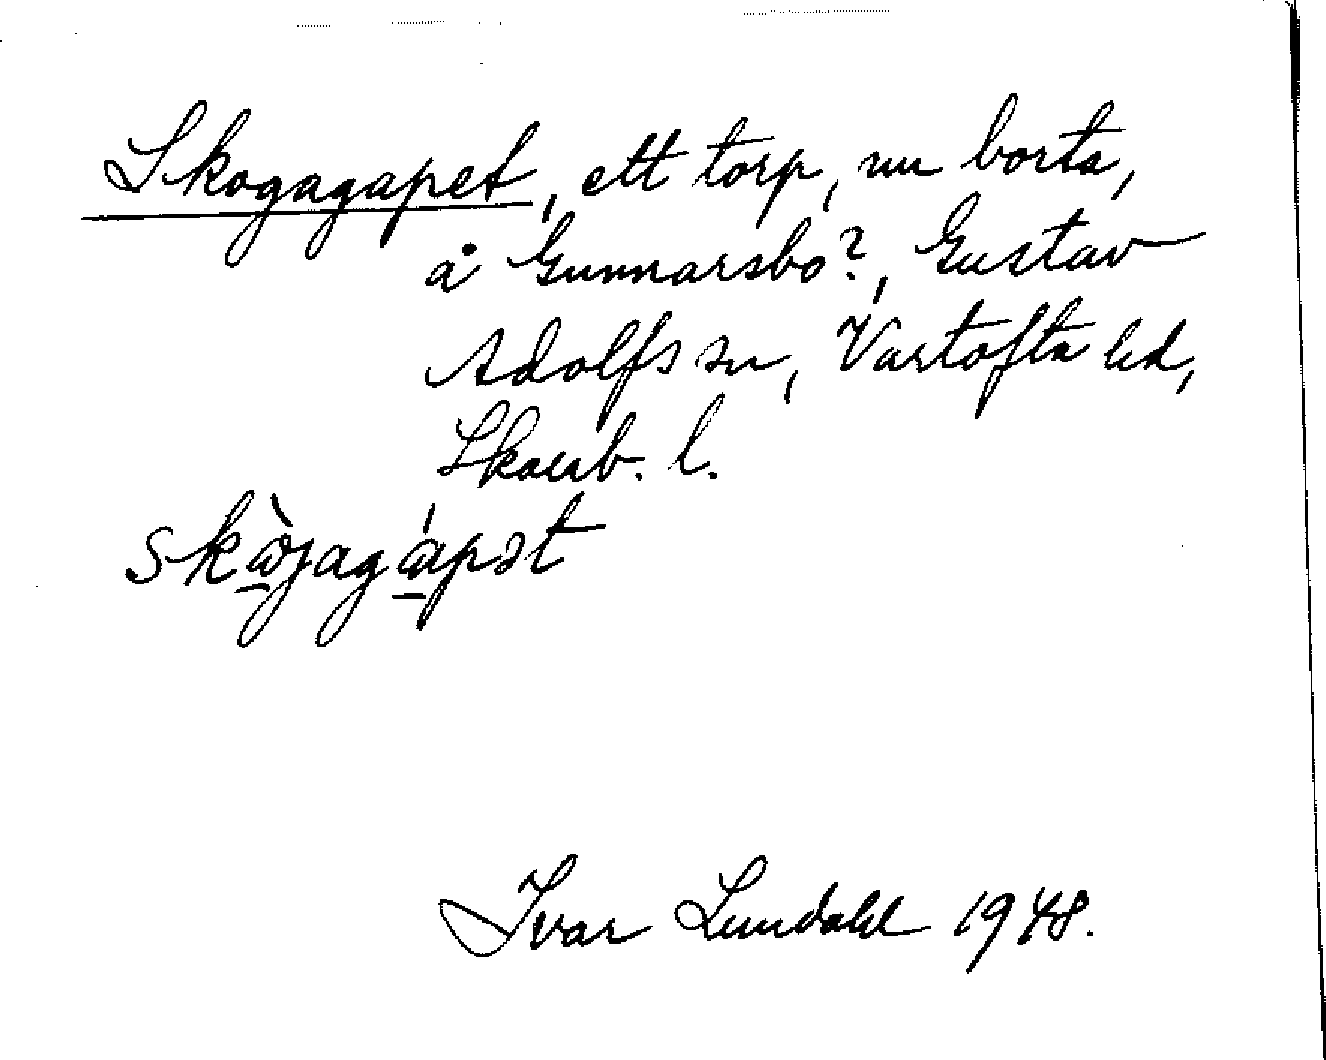 Skogagapet, ett torp, nu borta,
å Gunnarsbo?, Gustav
Adolfs sn, Vartofta hd,
Skarab. l.
Ivar Lundahl 1948.